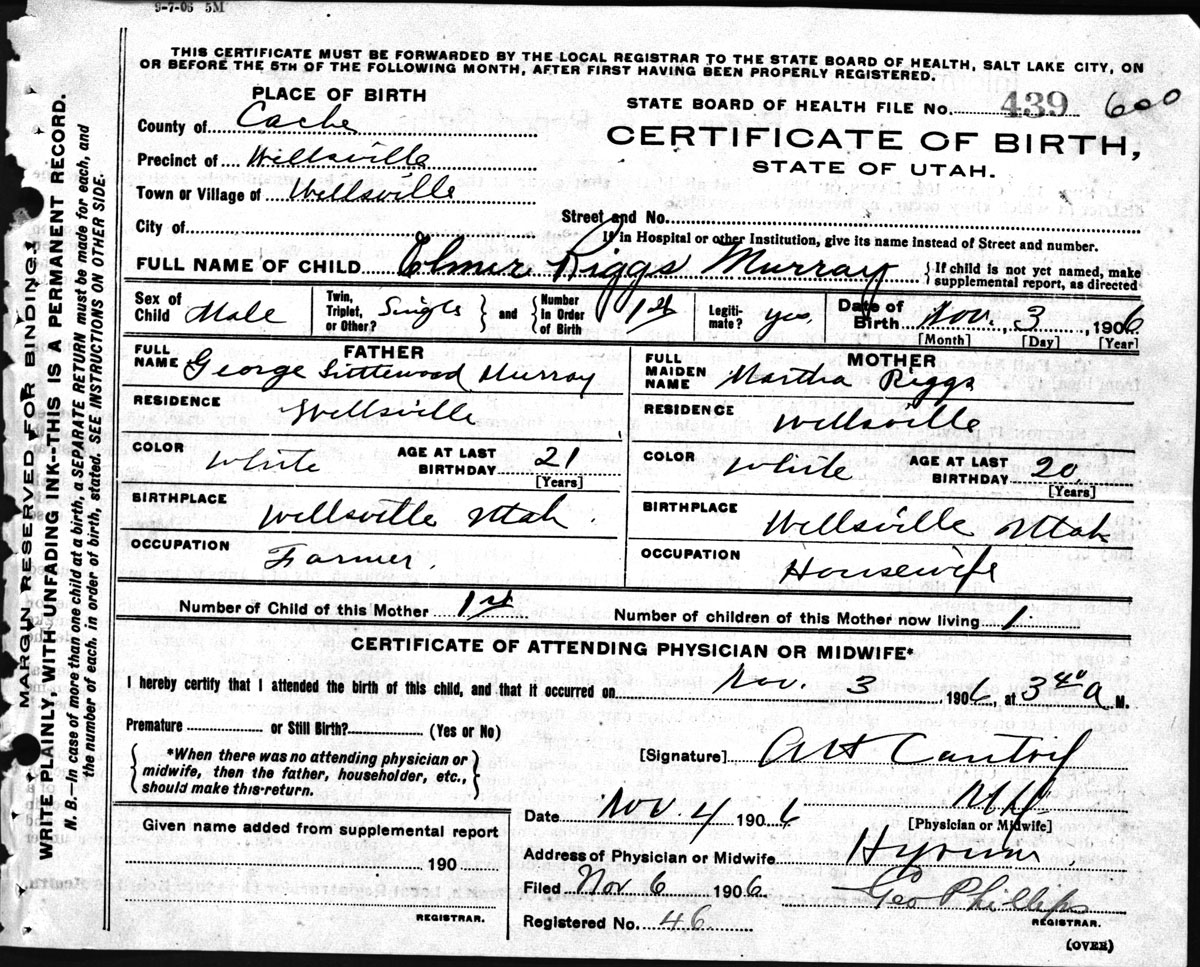 9-7-06 5M
THIS CERTIFICATE MUST BE FORWARDED BY THE LOCAL REGISTRAR TO THE STATE BOARD OF HEALTH, SALT LAKE CITY, ON
OR BEFORE THE 5TH OF THE FOLLOWING MONTH, AFTER FIRST HAVING BEEN PROPERLY REGISTERED.
PLACE OF BIRTH
County of Cache
Precinct of Willsville
Town or Village of Wellsville
City of
STATE BOARD OF HEALTH FILE No. 439 600
CERTIFICATE OF BIRTH,
STATE OF UTAH.
Street and No.
If in Hospital or other Institution, give its name instead of Street and number.
FULL NAME OF CHILD Elmer Riggs Murray { If child is not yet named, make supplemental report, as directed
Sex of Child Male Twin, Triplet, or Other? Single } and { Number In Order of Birth 1st Legiti- mate? yes, Date of Birth Nov. 3, 1906
[Month] [Day] [Year]
FATHER
FULL NAME George Murray
RESIDENCE Wellsville
COLOR White AGE AT LAST BIRTHDAY 21
[Years]
BIRTHPLACE Wellsville Utah.
OCCUPATION Farmer.
MOTHER
FULL MAIDEN NAME Martha Riggs
RESIDENCE Wellsville
COLOR White AGE AT LAST BIRTHDAY 20
[Years]
BIRTHPLACE Wellsville Utah
OCCUPATION Housewife
Number of Child of this Mother 1st Number of children of this Mother now living 1
CERTIFICATE OF ATTENDING PHYSICIAN OR MIDWIFE*
I hereby certify that I attended the birth of this child, and that it occurred on Nov. 3 1906, at 3 40 A M.
Premature or Still Birth? (Yes or No)
{ *When there was no attending physician or
midwife, then the father, householder, etc.,
should make this return. }
Given name added from supplemental report
190
REGISTRAR.
[Signature]
Date Nov. 4 1906
[Physician or Midwife]
Address of Physician or Midwife Hyrum
Filed Nov 6 1906 Geo Phillips
REGISTRAR.
Registered No. 46
(OVER)
MARGIN RESERVED FOR BINDING!
WRITE PLAINLY WITH UNFADING INK--THIS IS A PERMANENT RECORD.
N. B.—In case of more than one child at a birth, a SEPARATE RETURN must be made for each, and
the number of each. in order of birth, stated. SEE INSTRUCTIONS ON OTHER SIDE.